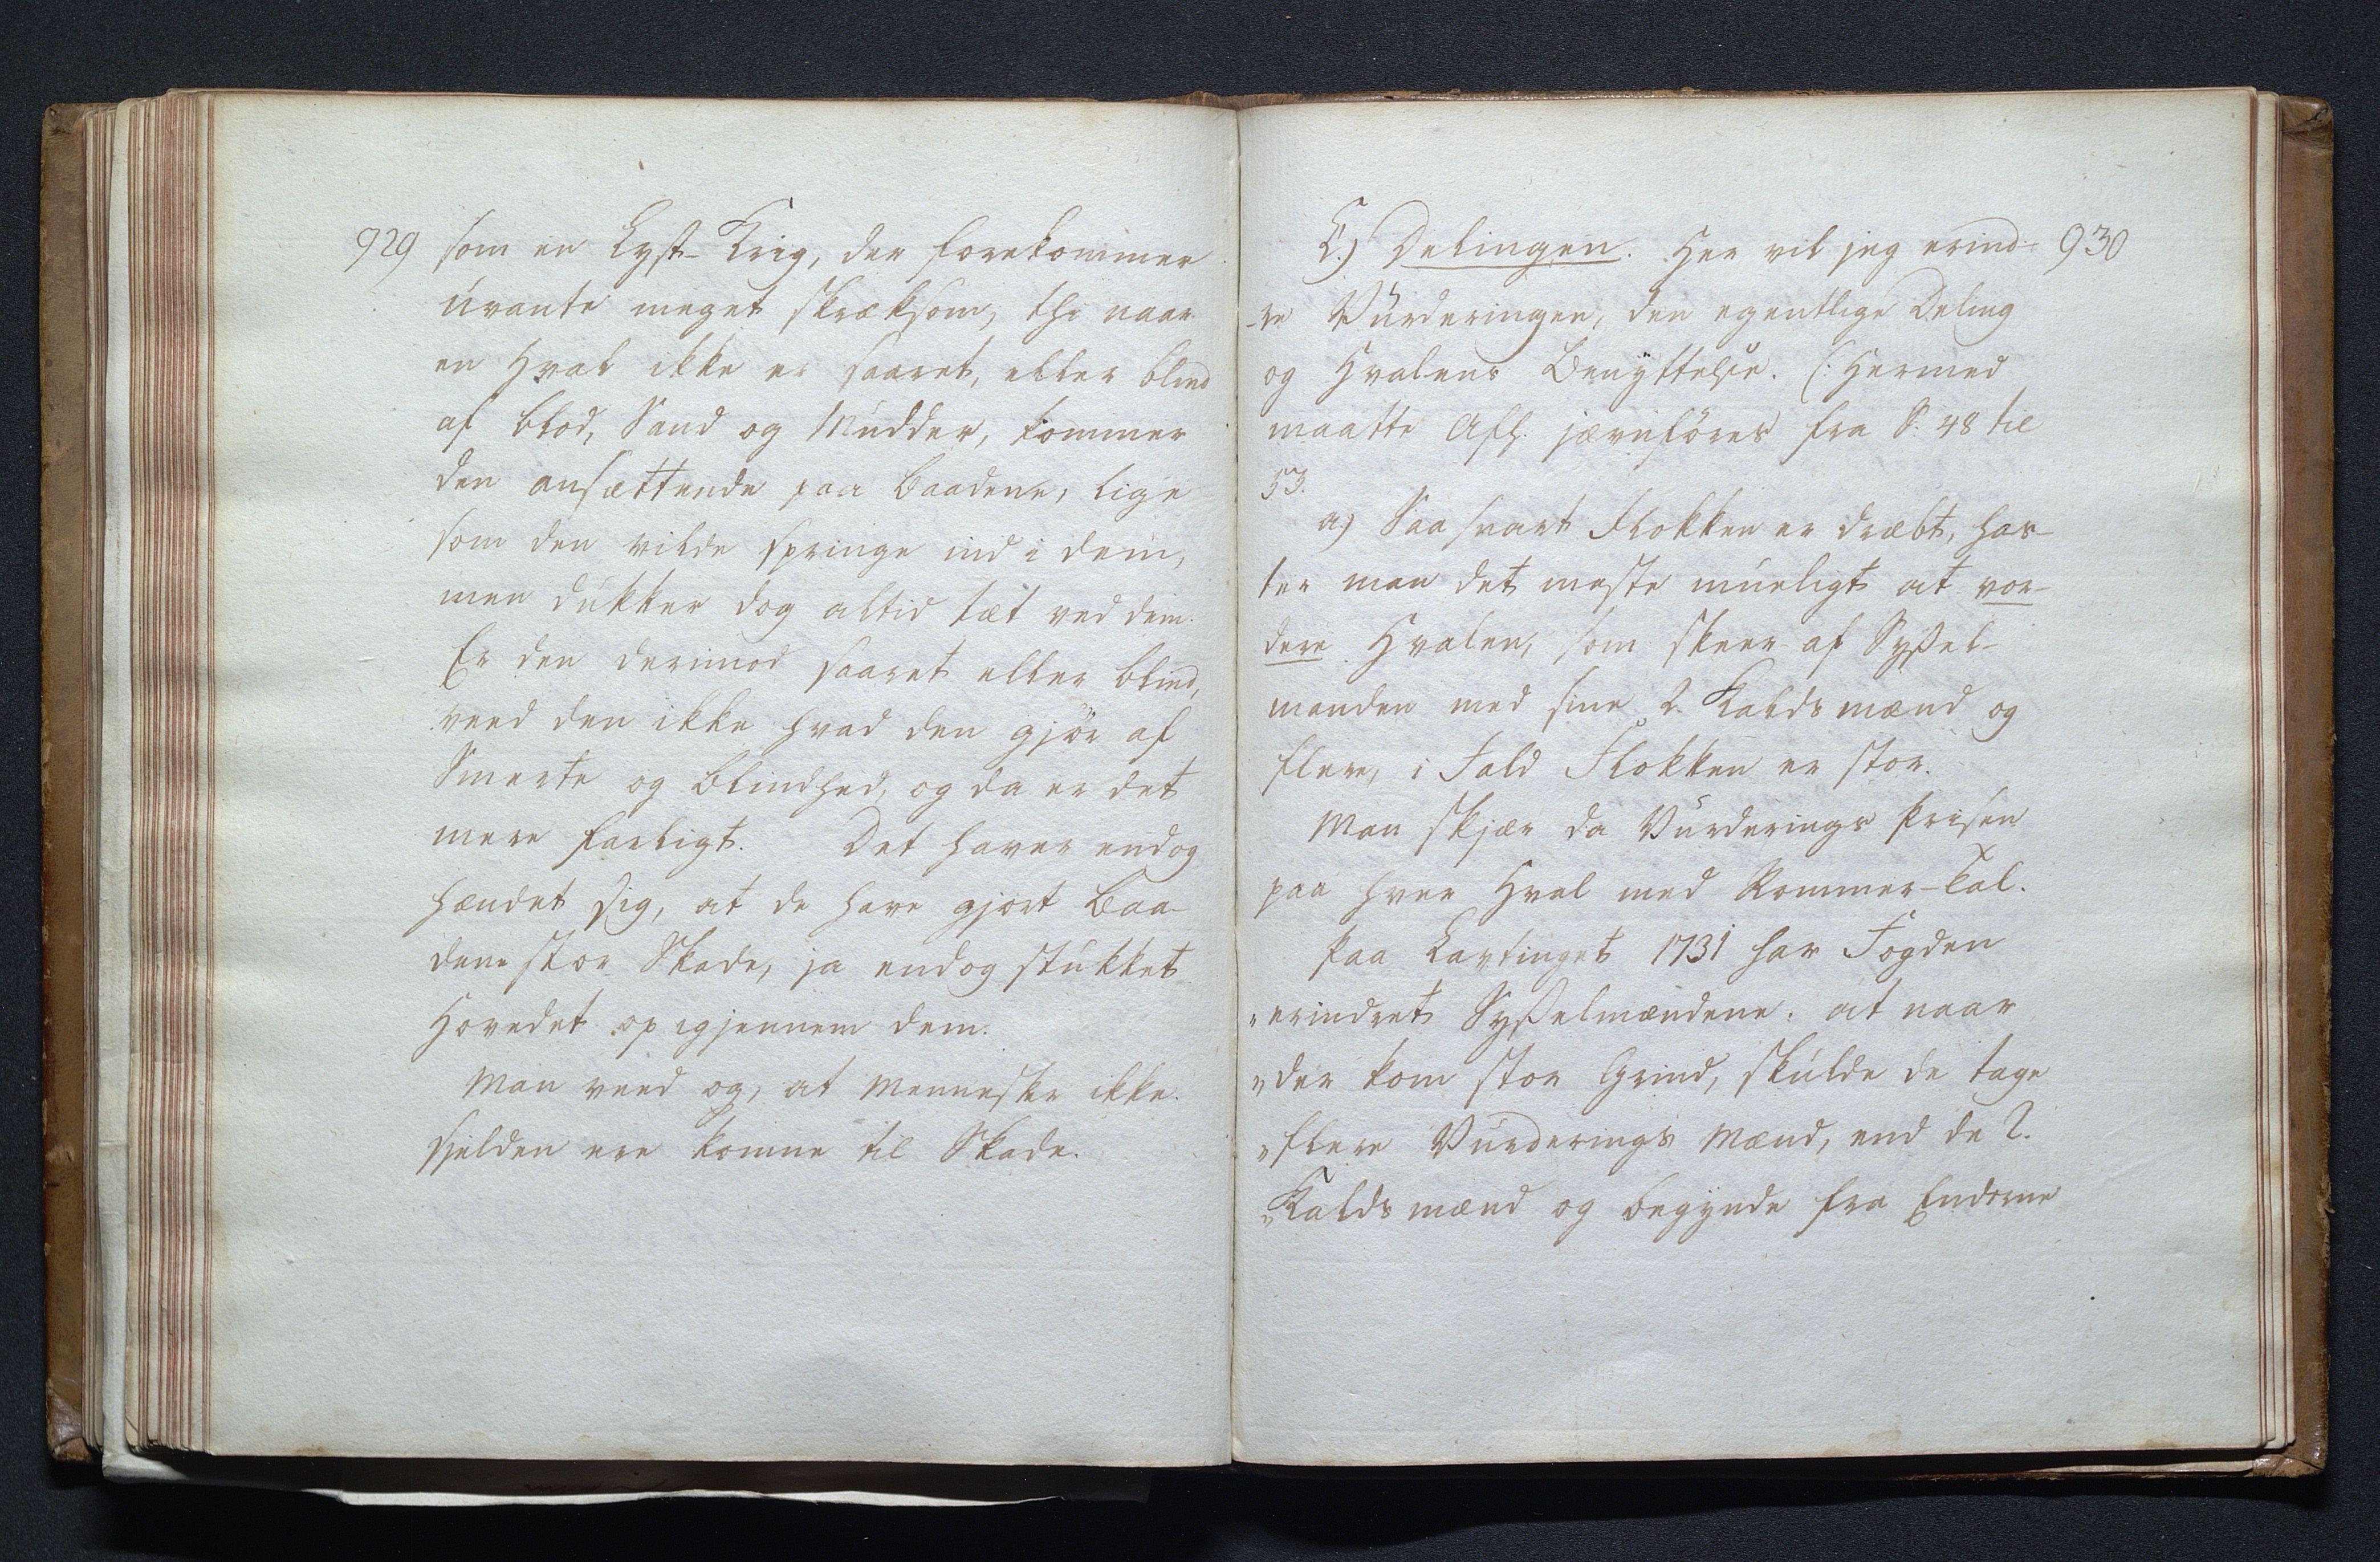 929
som en Lyst-Krig, der forekommer
uvante meget skræksom, thi naar
en Hval ikke er saaret, eller blind
af Blod, Sand og Mudder, kommer
den ansættende paa Baadene, lige
som den vilde springe ind i dem,
men dukker dog altid tæt ved dem.
Er den derimod saaret eller blind,
veed den ikke hvad den gjör af
Smerte og Blindhed, og da er det
mere farligt. Det haver endog
hændet sig, at de have gjort Baa-
dene stor Skade, ja endog stukket
Hovedet op igjennem dem.
Man veed og, at Menneske ikke
sjelden ere komne til Skade.
930
C.) Delingen. Her vil jeg erind-
-re Vurderingen, den egentlige Deling
og Hvalens Benyttelse. (: Hermed
maatte Afh. jævnföres fra S. 48 til
53.
a) Saa snart Flokken er dræbt, has-
ter man det meste mueligt at vor-
dere Hvalen, som skeer af Sysſel-
manden med sine 2 Kaldsmænd og
flere, i Fald Flokken er stor.
Man skjær da Vurderings Prisen
paa hver Hval med Rommer-Tal.
Paa Lavtinget 1731 har Fogden
„erindret Sysſelmændene: at naar
„der kom stor Grind, skulde de tage
„flere Vurderings Mænd, end de 2.
„Kaldsmænd og begynde fra Enderne